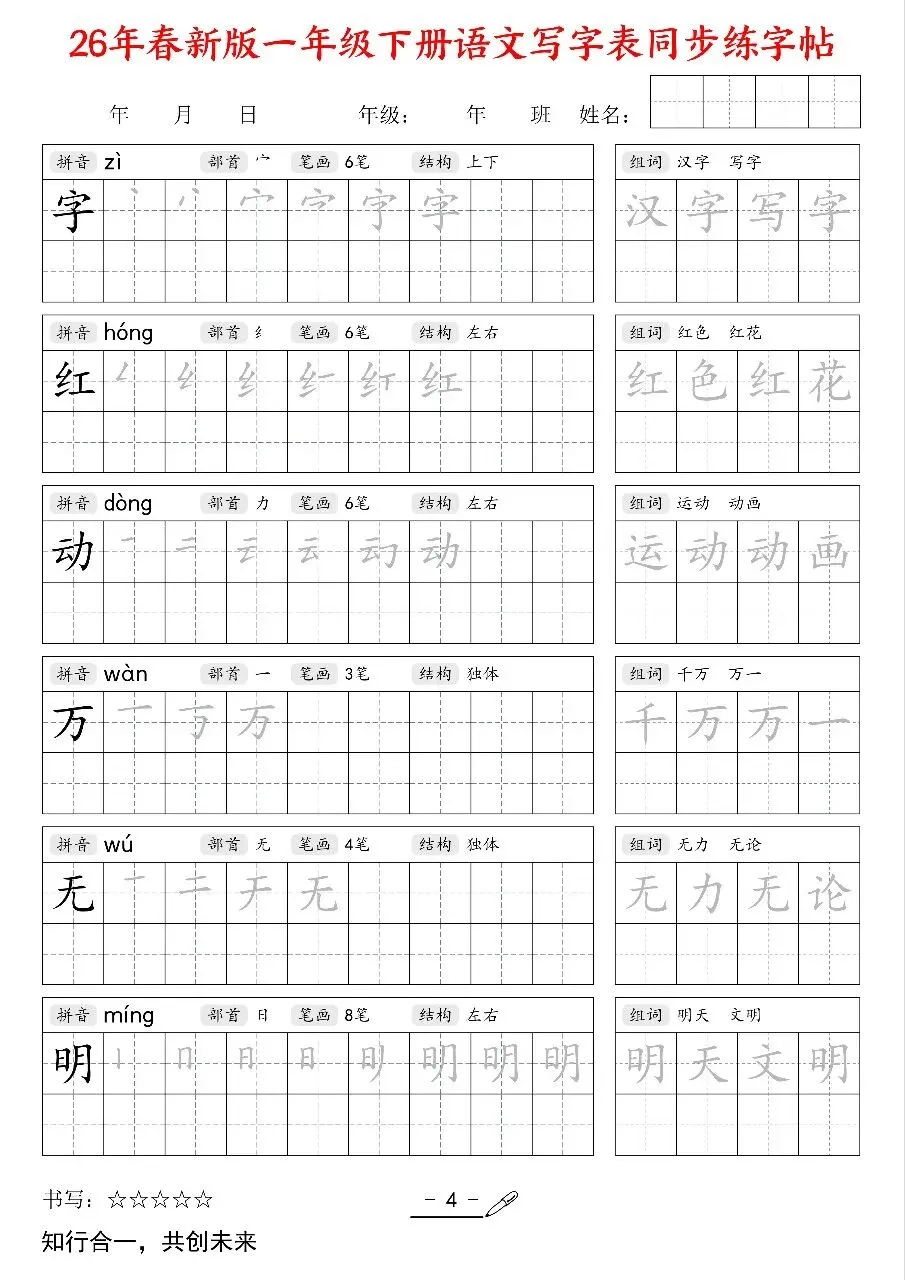 26年春新版一年级下册语文写字表同步练字帖
年 月 日 年级： 年 班 姓名：
拼音 zì 部首 宀 笔画 6笔 结构 上下 组词 汉字 写字
字 丶 丷 宀 字 字 字 汉 字 写 字
拼音 hóng 部首 纟 笔画 6笔 结构 左右 组词 红色 红花
红 纟 纟 红 红 红 色 红 花
拼音 dòng 部首 力 笔画 6笔 结构 左右 组词 运动 动画
动 一 二 云 云 动 动 运 动 动 画
拼音 wàn 部首 一 笔画 3笔 结构 独体 组词 千万 万一
万 一 丂 万 千 万 万 一
拼音 wú 部首 无 笔画 4笔 结构 独体 组词 无力 无论
无 一 二 于 无 无 力 无 论
拼音 míng 部首 日 笔画 8笔 结构 左右 组词 明天 文明
明 丨 冂 日 日 明 明 明 明 明 天 文 明
书写：☆☆☆☆☆ - 4 -
知行合一，共创未来